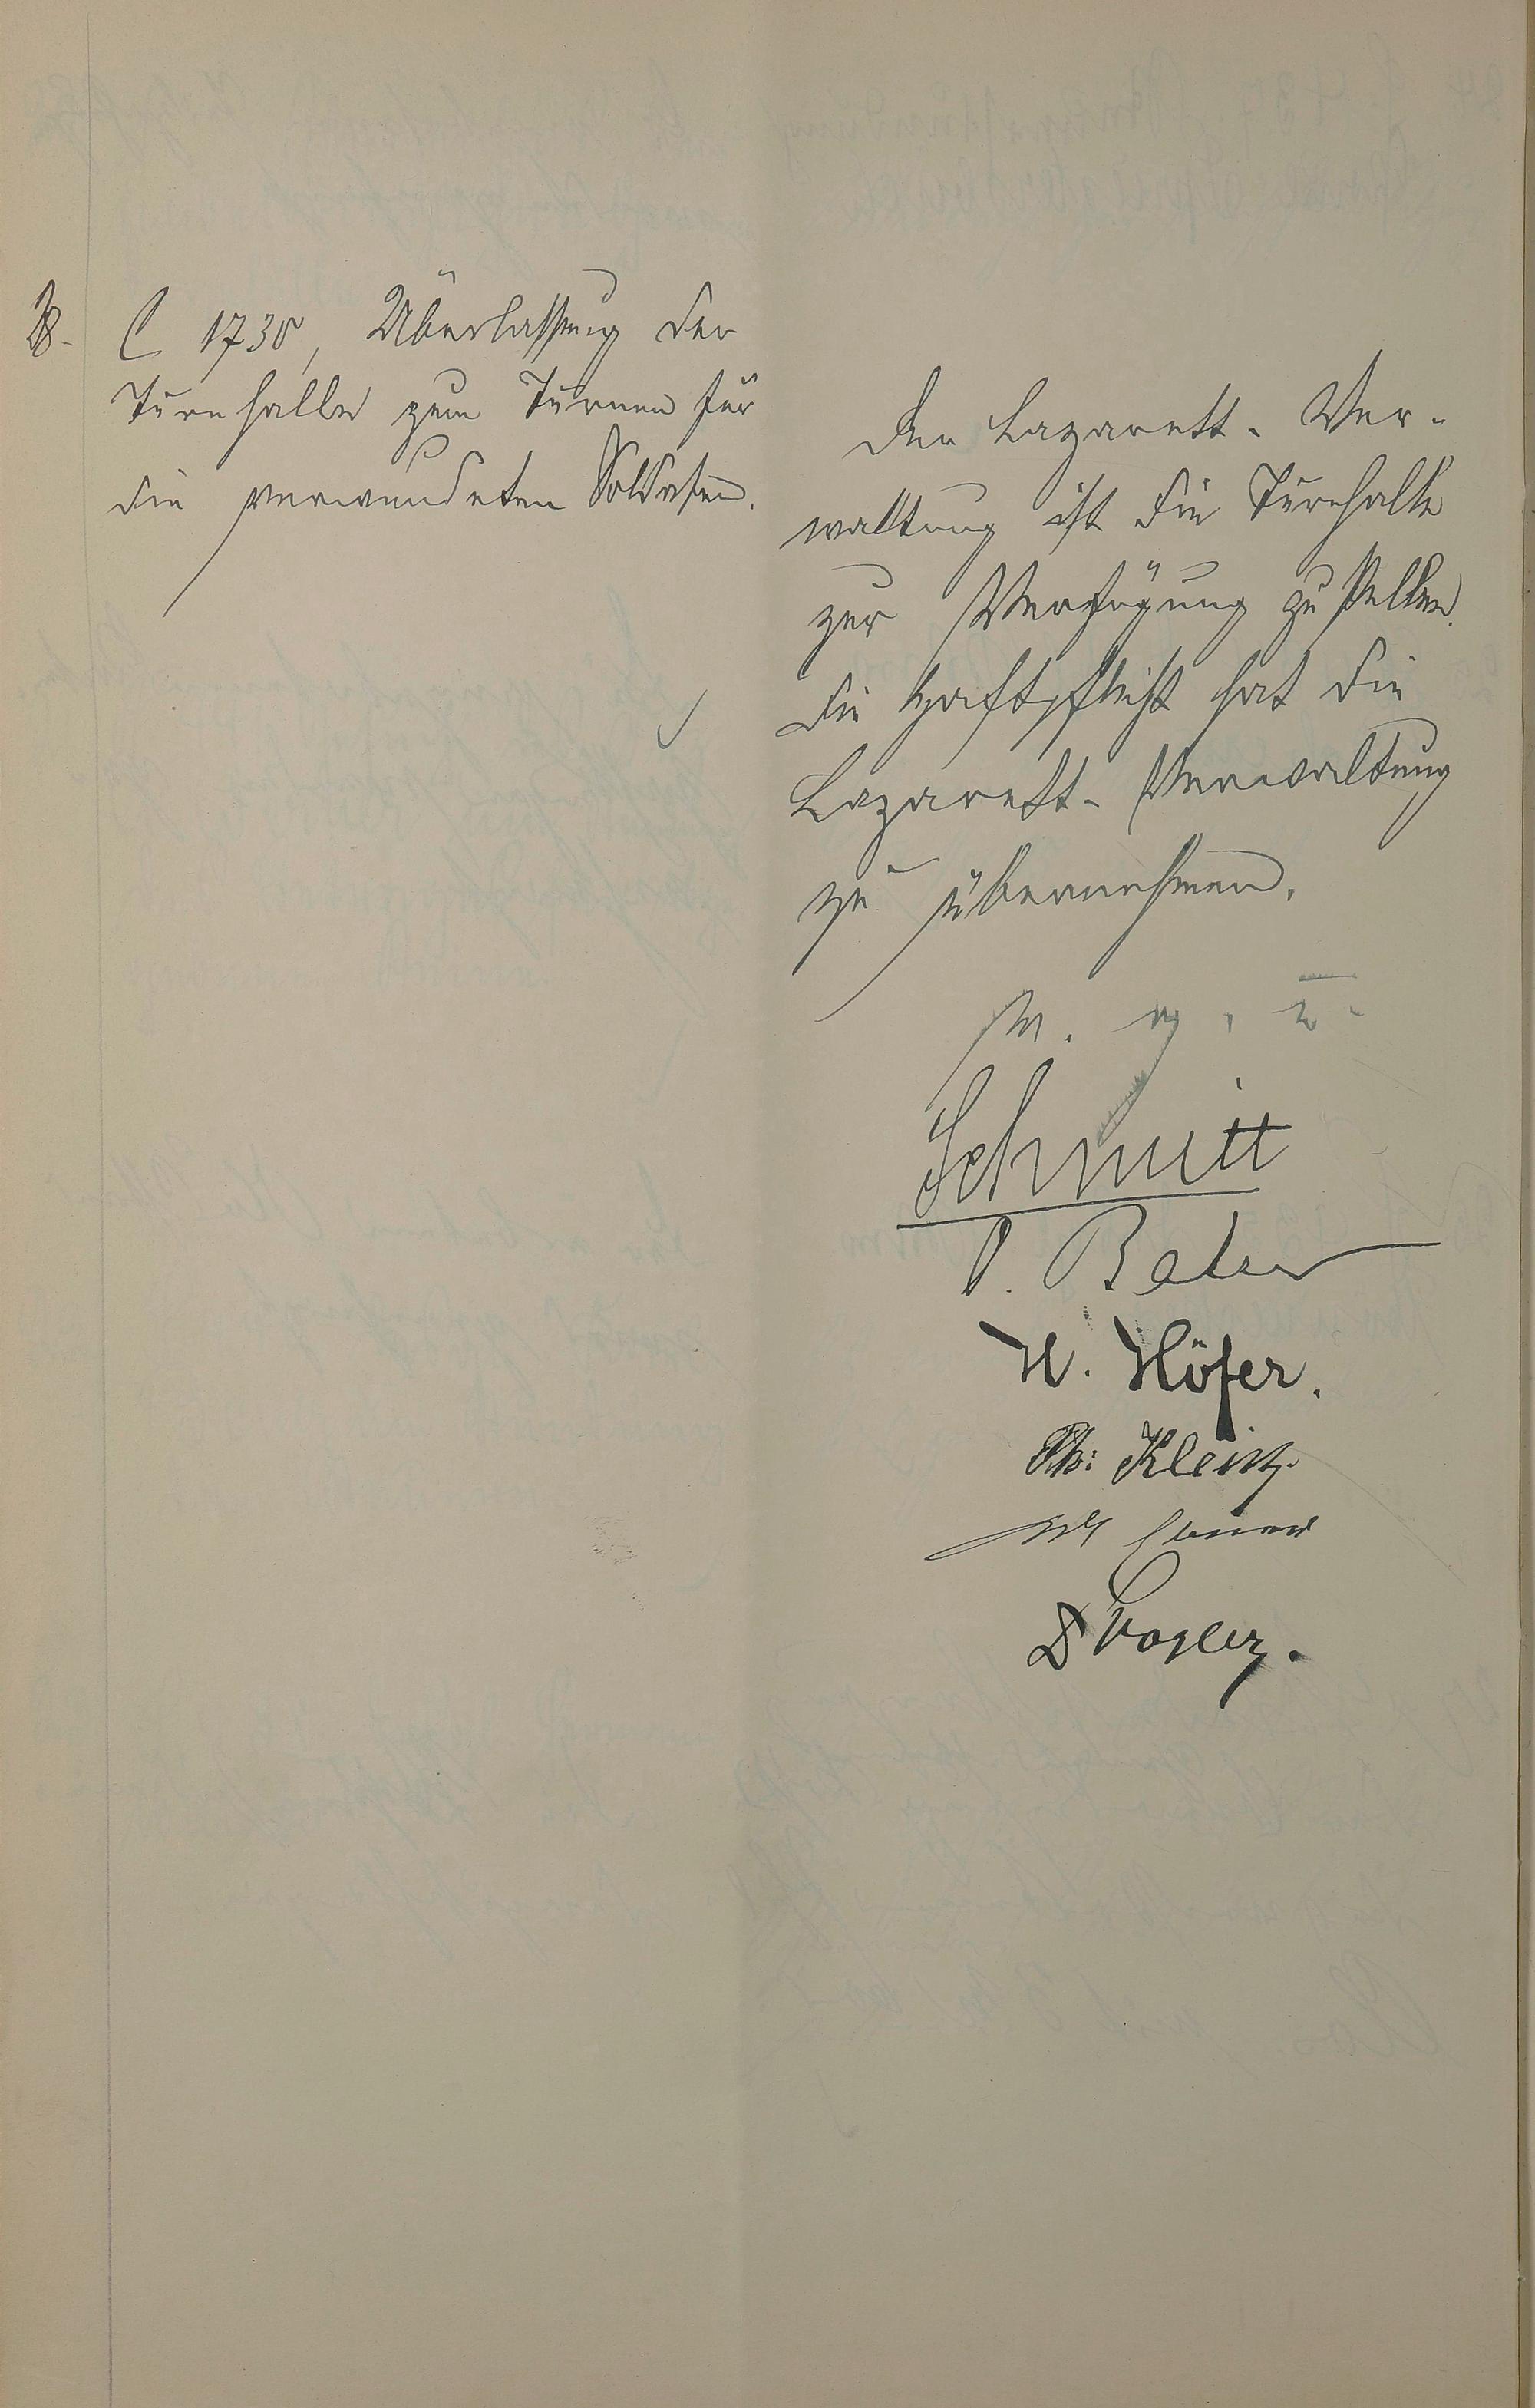 28.
C 1738, Überlassung der
Turnhalle zum Turnen für
die verwundeten Soldaten.
Der Lazarett-Ver-
waltung ist die Turnhalle
zur Verfügung zu stellen.
Die Haftpflicht hat die
Lazarett-Verwaltung
zu übernehmen.
Schmitt
H. Höfer.
Ph: Kleinz.